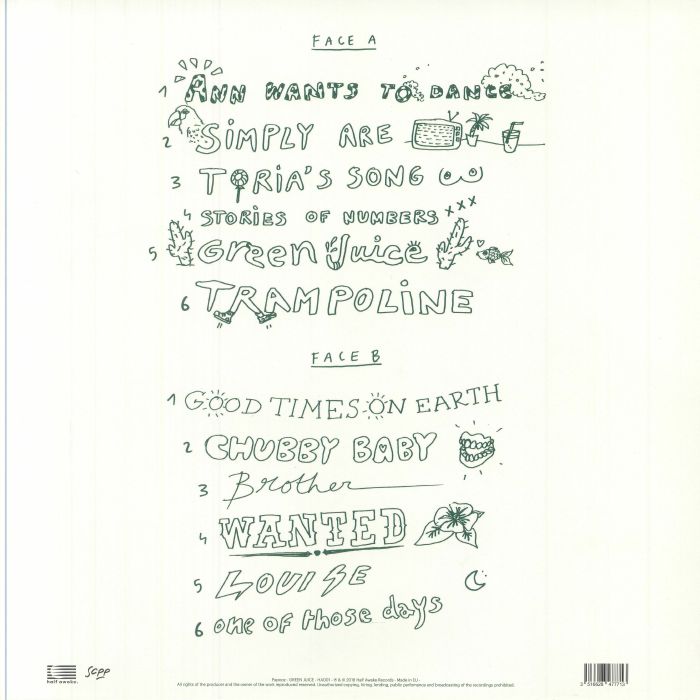 FACE A
1 ANN WANTS TO DANCE
2 SiMPLY ARE
3 TORIA'S SONG
4 STORiES OF NUMBERS xxx
5 Green Juice
6 TRAMPOLiNE
FACE B
1 GOOD TIMES ON EARTH
2 CHUBBY BABY
3 Brother
4 WANTED
5 LOUISE
6 one of those days
half awake.
Papooz - GREEN JUICE - HA001 - ℗ & © 2016 Half Awake Records - Made in EU -
All rights of the producer and the owner of the work reproduced reserved. Unauthorized copying, hiring, lending, public performance and broadcasting of the recordings prohibited.